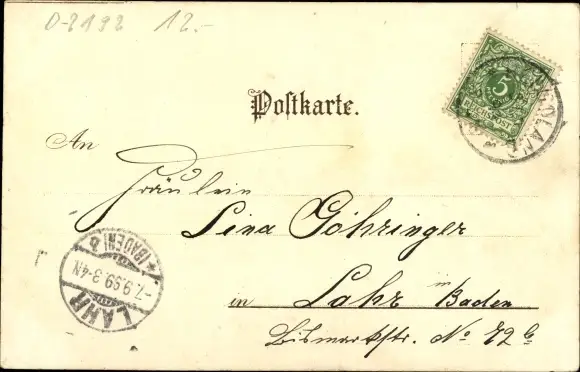 D-8192 12.-
5
REICHSPOST
Postkarte.
An
Fräulein
Lina Göhringer
in Lahr in Baden
Bismarkstr. No 72 b
LAHR * (BADEN) &
-7.9.99.3-4N.